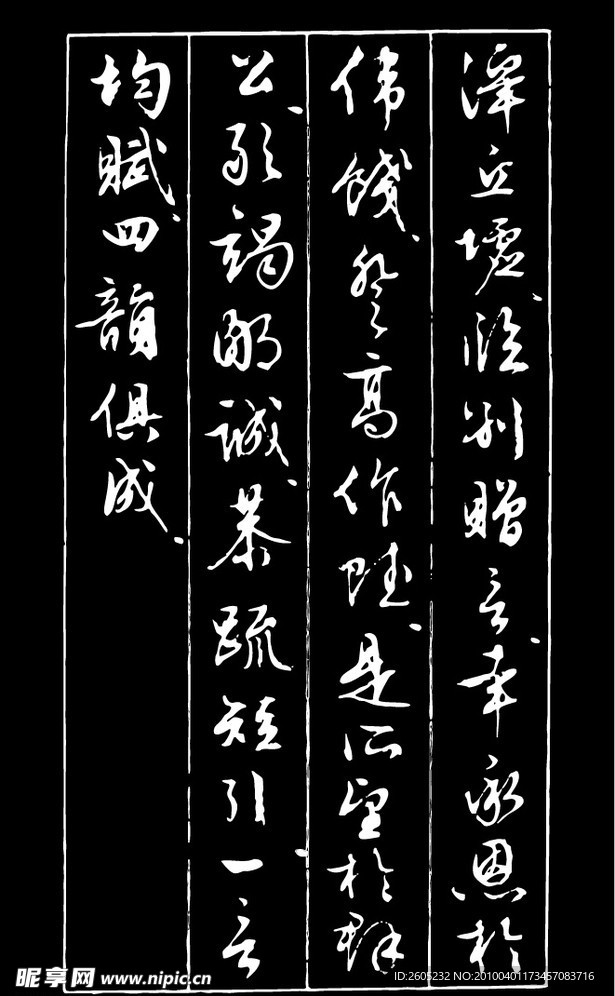 澤丘墟、臨別贈言、幸承恩於
偉餞、登高作賦、是所望於群
公、敢竭鄙誠、恭疏短引、一言
均賦、四韻俱成、
昵享网 www.nipic.cn
ID:2605232 NO:20100401173457083716